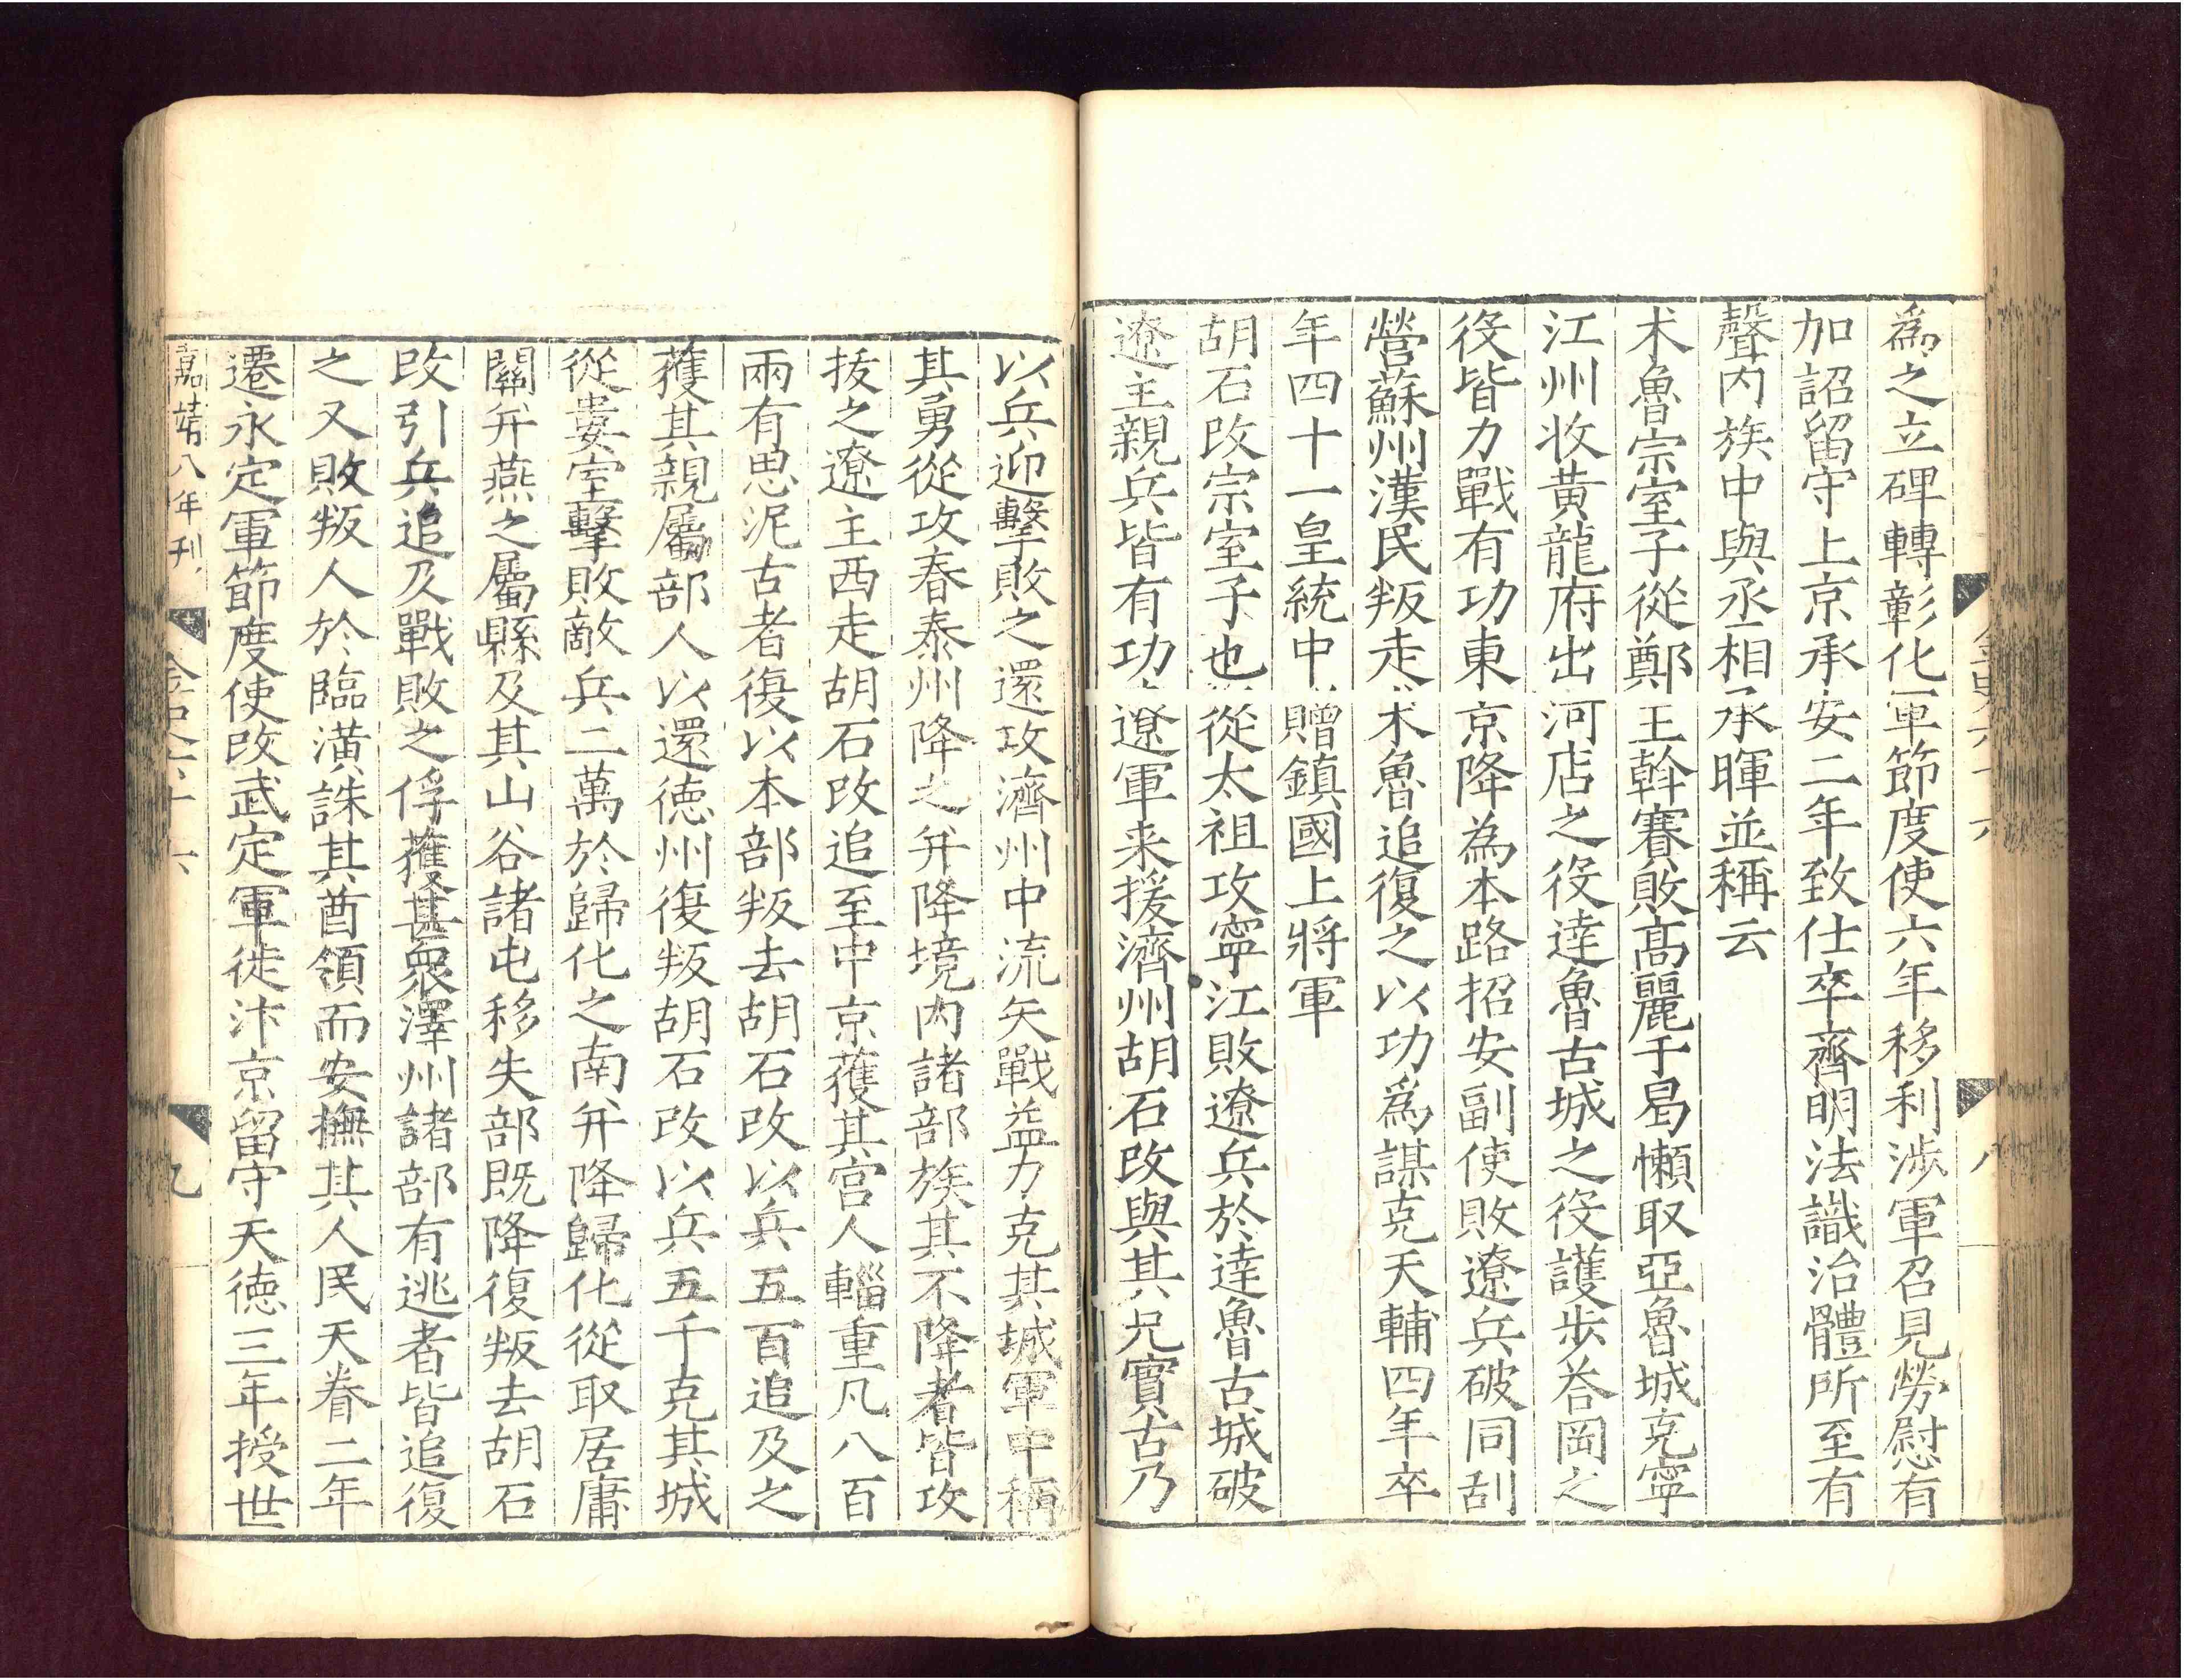 金史六十六
八
爲之立碑轉彰化軍節度使六年移利涉軍召見勞慰有
加詔留守上京承安二年致仕卒齊明法識治體所至有
聲内族中與丞相承暉並稱云
术魯宗室子從鄭王斡賽敗髙麗于曷懶取亞魯城克寧
江州收黄龍府出河店之役達魯古城之役護步荅岡之
役皆力戰有功東京降為本路招安副使敗遼兵破同刮
營蘇州漢民叛走术魯追復之以功爲謀克天輔四年卒
年四十一皇統中贈鎮國上將軍
胡石改宗室子也從太祖攻寧江敗遼兵於達魯古城破
遼主親兵皆有功遼軍来援濟州胡石改與其兄實古乃
以兵迎擊敗之還攻濟州中流矢戰益力克其城軍中稱
其勇從攻春泰州降之并降境内諸部族其不降者皆攻
拔之遼主西走胡石改追至中京獲其宫人輜重凡八百
兩有思泥古者復以本部叛去胡石改以兵五百追及之
獲其親屬部人以還徳州復叛胡石改以兵五千克其城
從婁室擊敗敵兵二萬於歸化之南并降歸化從取居庸
關并燕之屬縣及其山谷諸屯移失部既降復叛去胡石
改引兵追及戰敗之俘獲甚衆澤州諸部有逃者皆追復
之又敗叛人於臨潢誅其酋領而安撫其人民天眷二年
遷永定軍節度使改武定軍徙汴京留守天徳三年授世
嘉靖八年刊
金史六十六
九